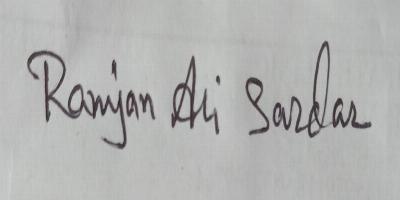 Ramjan Ali Sardar